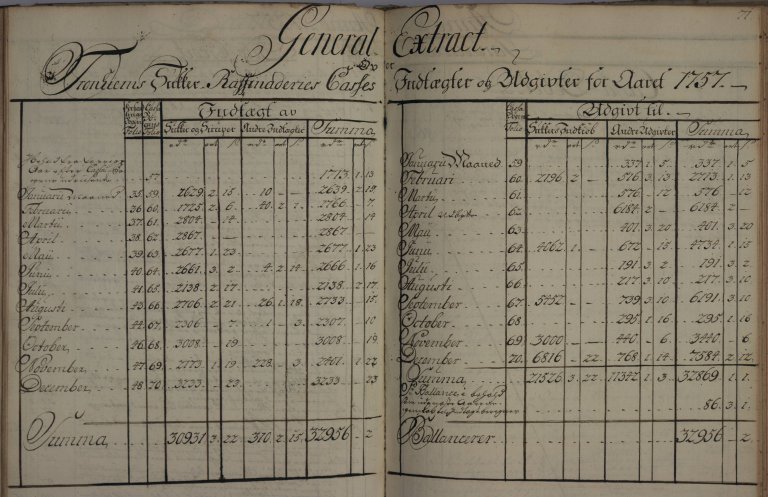 77
General Extract
Over
Tronhiems Sukker Raffinaderies Casses Indtægter og Udgivter for Aaret 1757.
Indtægt av
Sukker og Sirruper Andre Indtægter Summa
57. 1713. 1. 13
Januarii Maaned 35. 59. 2629. 2. 15. 10 2639. 2. 15
Februarii 36. 60. 1725. 2. 6. 40. 2. 1766. 7
Martii 37. 61. 2804. 14 2804. 14
April 38. 62. 2867. 2867.
Maii 39. 63. 2677. 1. 23 2677. 1. 23
Junii 40. 64. 2661. 3. 2. 4. 2. 14. 2666. 1. 16
Julii 41. 65. 2138. 2. 17. 2138. 2. 17
Augusti 43. 66. 2706. 2. 21. 26. 1. 18. 2733. 15
September 44. 67. 2306. 7. 1. 3. 2307. 10
October 46. 68. 3008. 19 3008. 19
November 47. 69. 2173. 1. 19. 228. 3. 2401. 1. 22
December 48. 70. 3233. 23 3233. 23
Summa 30931. 3. 22. 310. 2. 15. 32956. 2
Udgivt til
Sukkers Indkiøb Andre Udgivter Summa
Januarii Maaned 59. 337. 1. 5. 337. 1. 5
Februarii 60. 2196. 2. 516. 3. 13. 2713. 1. 13
Martii 61. 576. 12 576. 12
April 62. 6184. 2 6184. 2
Maii 63. 401. 3. 20 401. 3. 20
Junii 64. 4062. 1. 672. 15 4734. 1. 15
Julii 65. 191. 3. 2 191. 3. 2
Augusti 66. 217. 3. 10 217. 3. 10
September 67. 5452. 739. 3. 10 6191. 3. 10
October 68. 295. 1. 16 295. 1. 16
November 69. 3000. 440. 6 3440. 6
December 70. 6816. 22 768. 1. 14 7584. 2. 12
Summa 21526. 3. 22 11342. 1. 3. 32869. 1. 1
86. 3. 1
Ballancerer 32956. 2